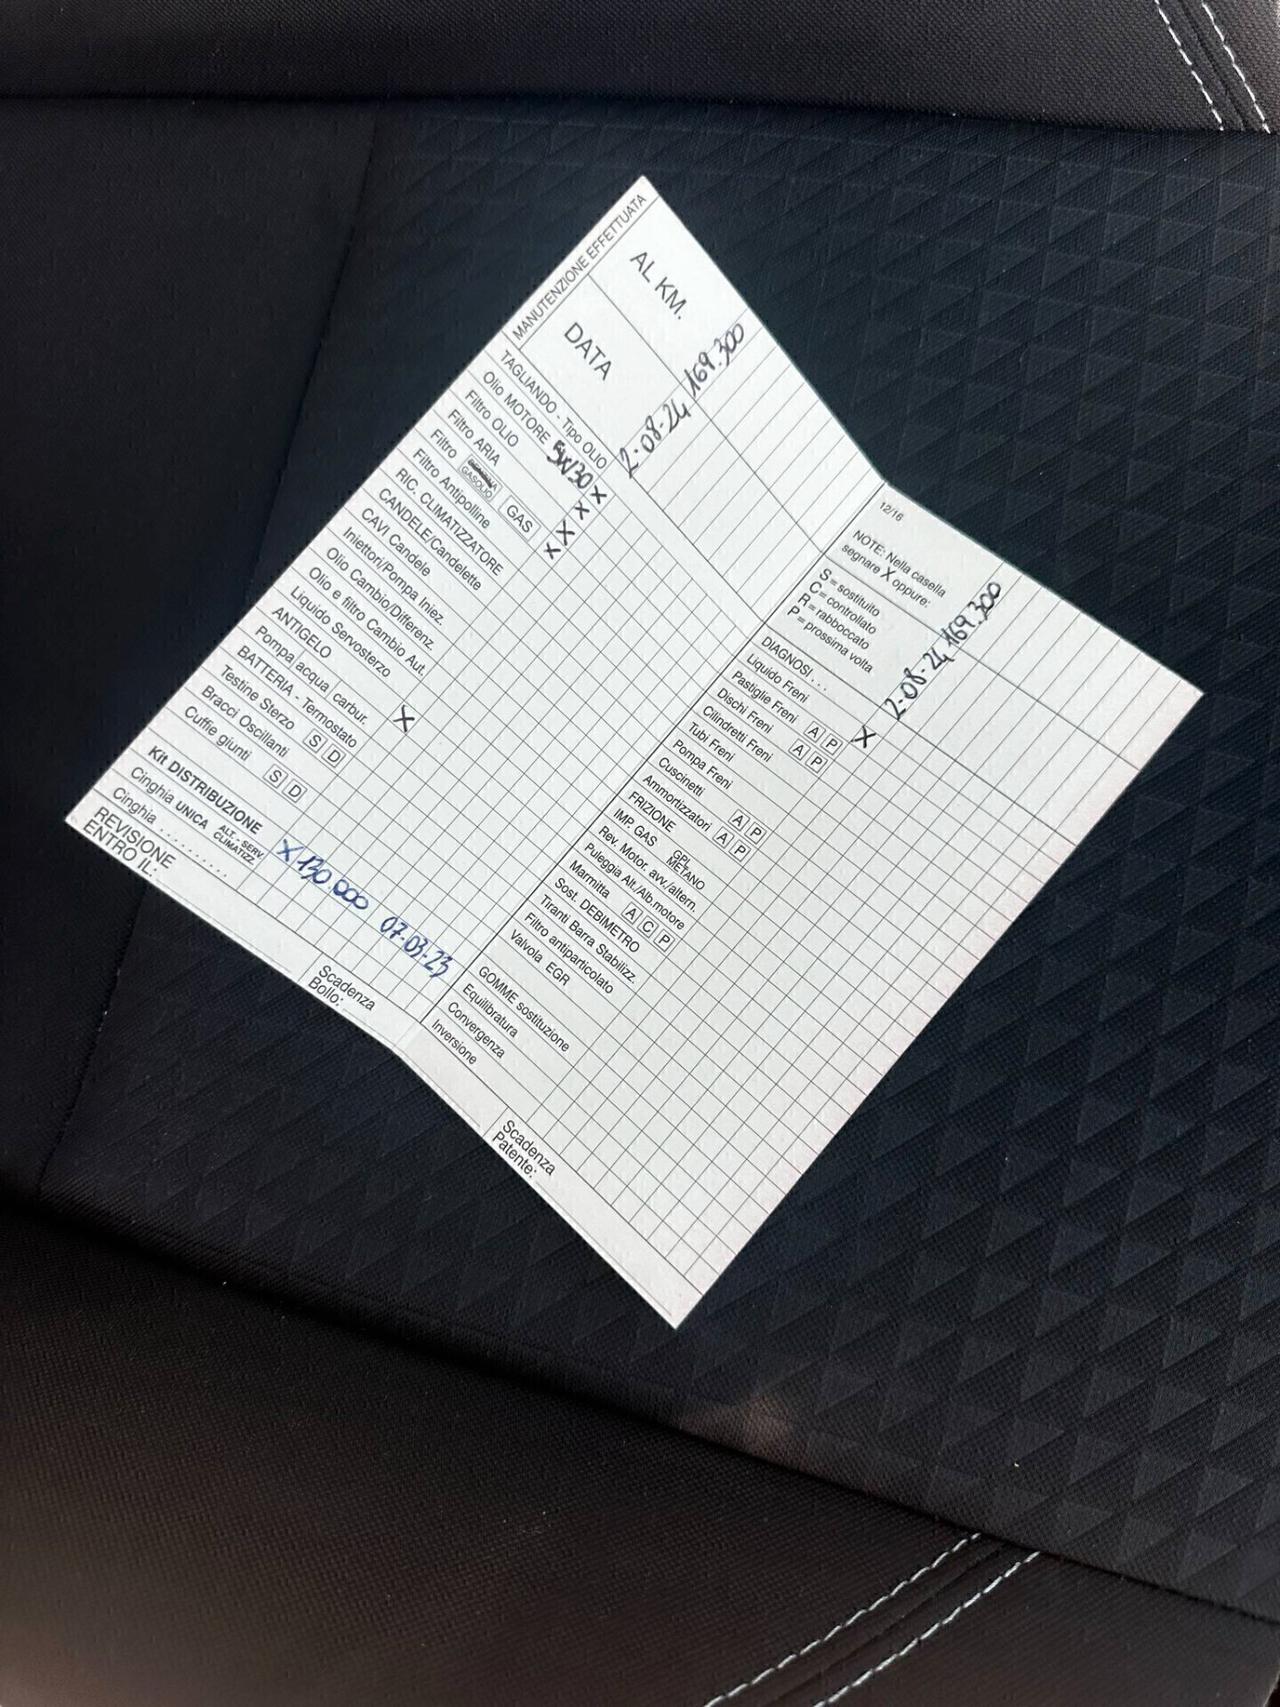 MANUTENZIONE EFFETTUATA
AL KM.
DATA
169.300
2-08-24
TAGLIANDO - Tipo OLIO
Olio MOTORE 5W30 X
Filtro OLIO X
Filtro ARIA X
Filtro GASOLIO GAS X
Filtro Antipolline
RIC. CLIMATIZZATORE
CANDELE/Candelette
CAVI Candele
Iniettori/Pompa Iniez.
Olio Cambio/Differenz.
Olio e filtro Cambio Aut.
Liquido Servosterzo
ANTIGELO
Pompa acqua carbur.
BATTERIA - Termostato X
Testine Sterzo S D
Bracci Oscillanti
Cuffie giunti S D
Kit DISTRIBUZIONE
Cinghia UNICA ALT. - SERV. CLIMATIZZ. X 130 000 07-03-23
Cinghia .........
REVISIONE
ENTRO IL:
Scadenza
Bollo:
12/16
NOTE: Nella casella
segnare X oppure:
S = sostituito
C = controllato
R = rabboccato
P = prossima volta
2-08-24 169.300
DIAGNOSI . . .
Liquido Freni
Pastiglie Freni A P X
Dischi Freni A P
Cilindretti Freni
Tubi Freni
Pompa Freni
Cuscinetti A P
Ammortizzatori A P
FRIZIONE
IMP. GAS GPL METANO
Rev. Motor. avv./altern.
Puleggia Alt./Alb.motore
Marmitta A C P
Sost. DEBIMETRO
Tiranti Barra Stabilizz.
Filtro antiparticolato
Valvola EGR
GOMME sostituzione
Equilibratura
Convergenza
Inversione
Scadenza
Patente: